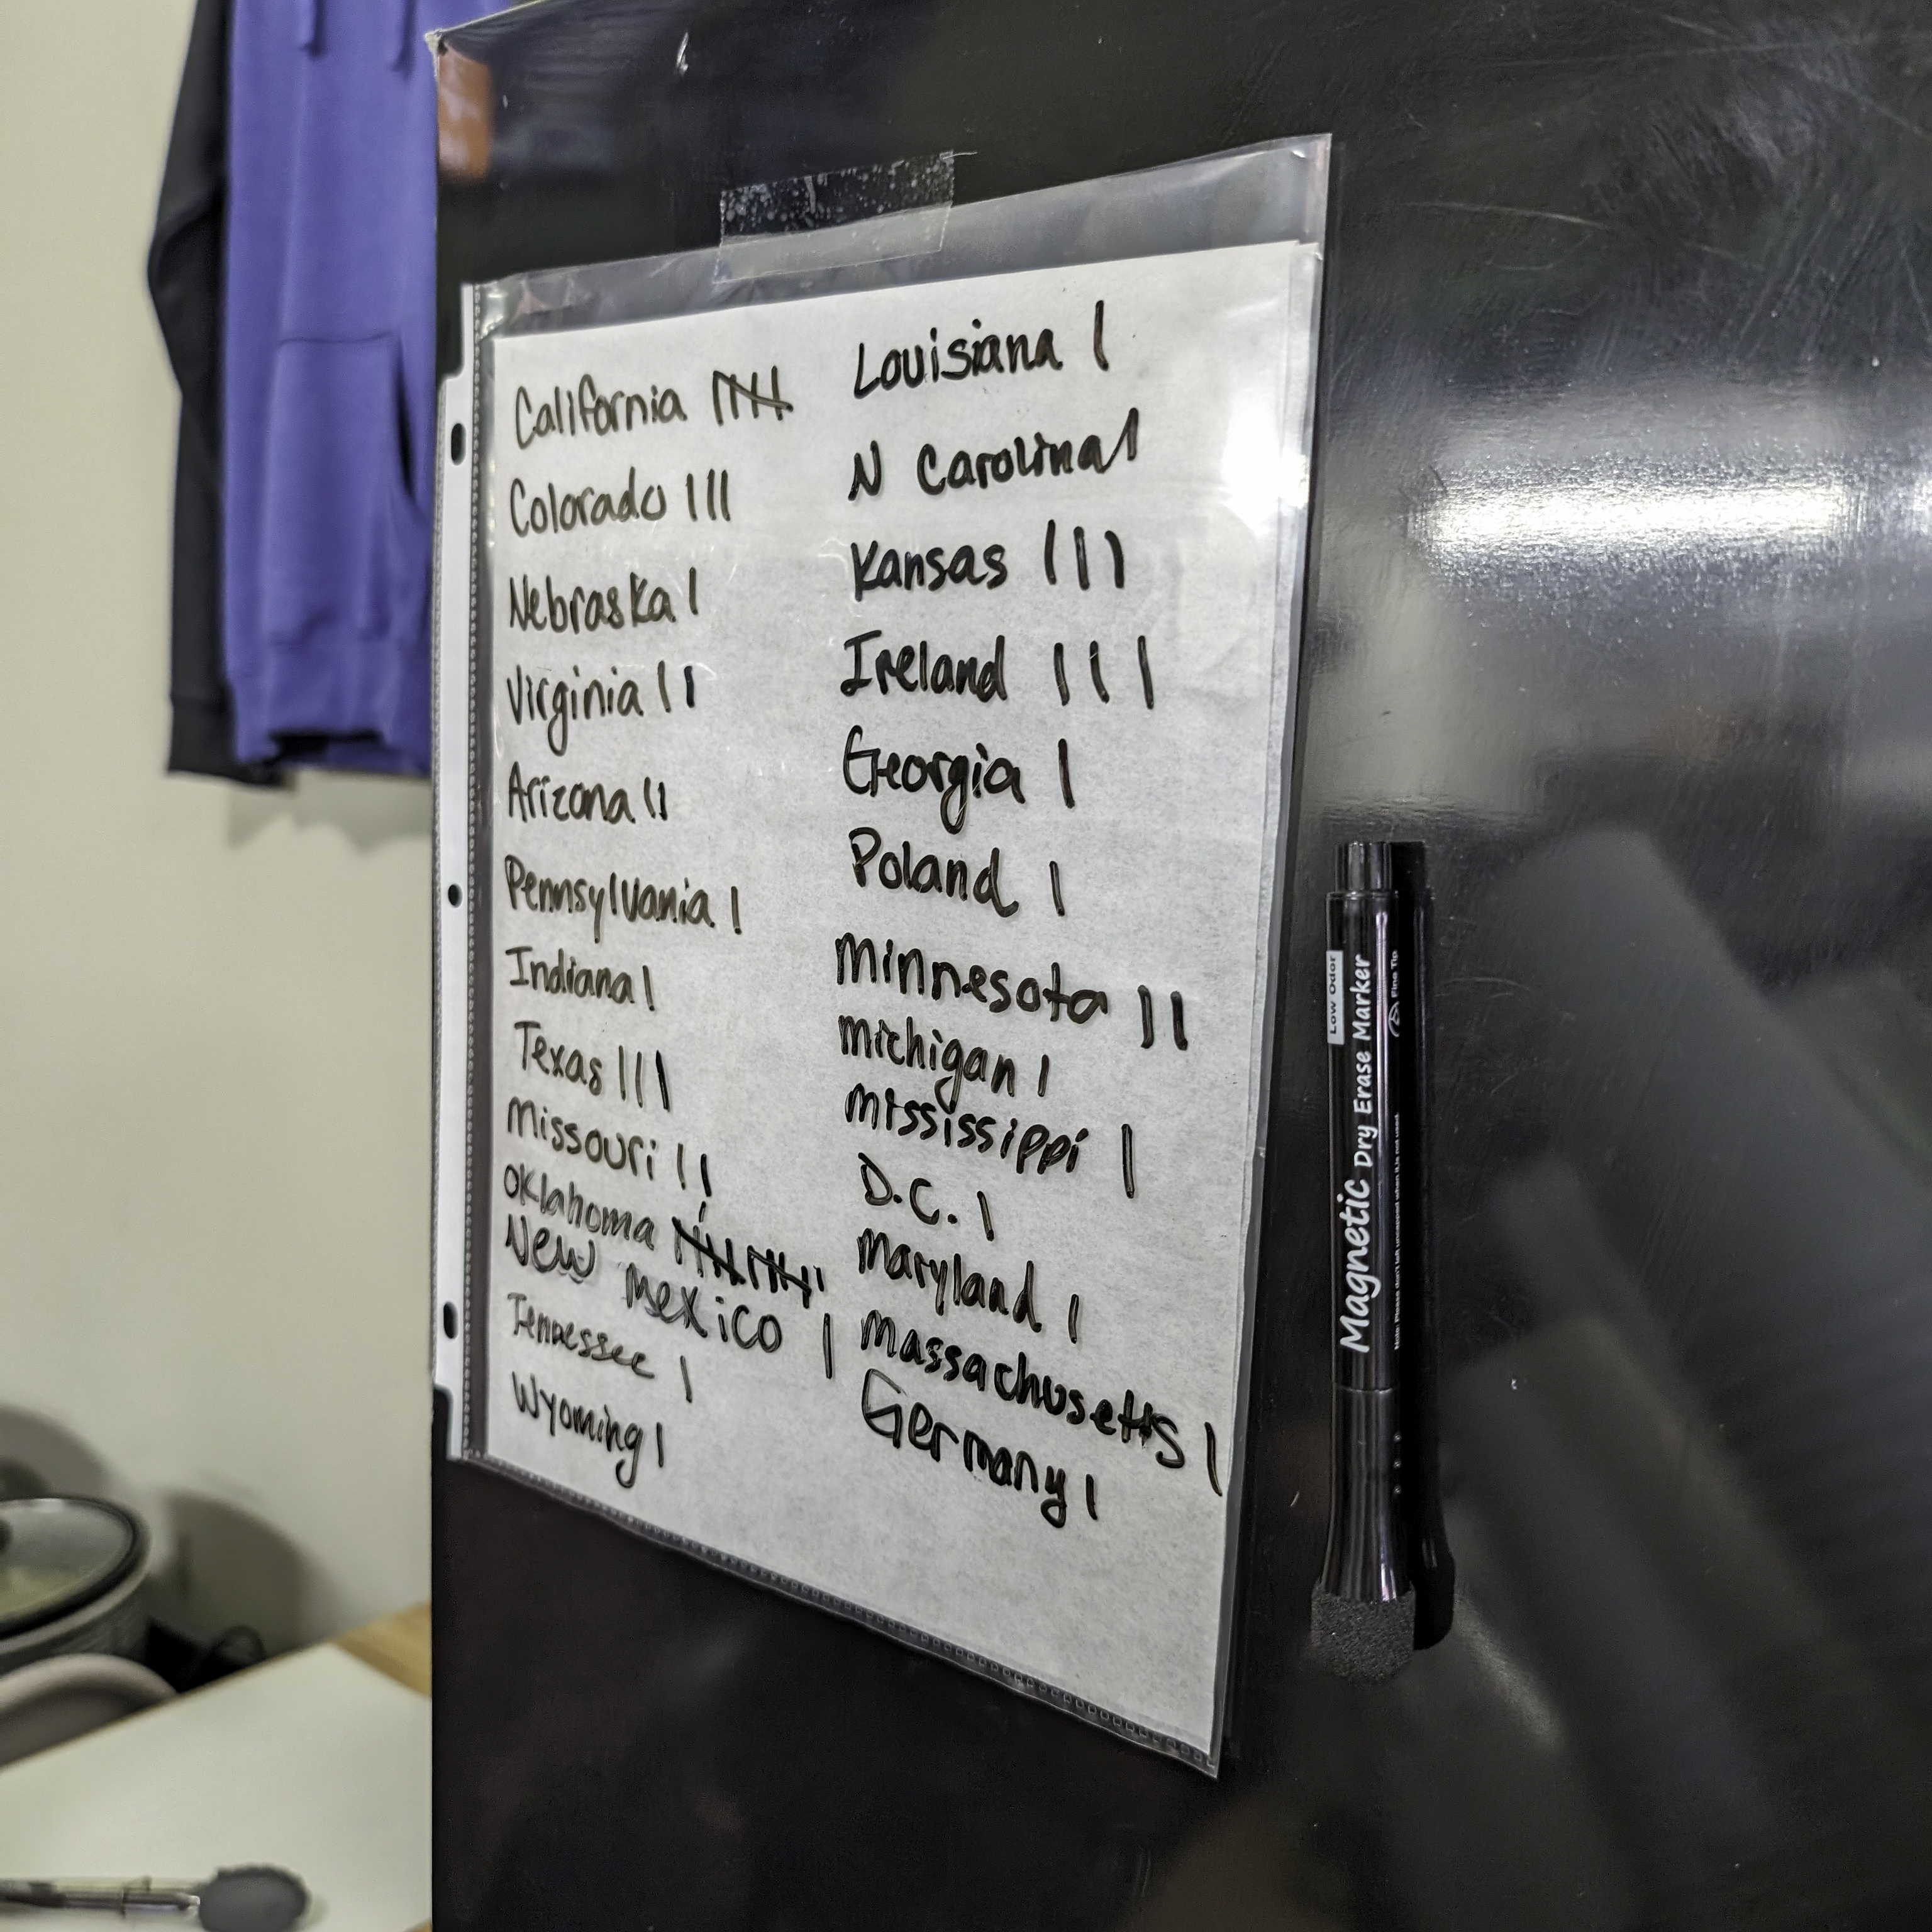 California 𝍸
Colorado |||
Nebraska |
Virginia ||
Arizona ||
Pennsylvania |
Indiana |
Texas |||
Missouri ||
Oklahoma 𝍸 𝍸 |
New Mexico |
Tennessee |
Wyoming |
Louisiana |
N Carolina |
Kansas |||
Ireland |||
Georgia |
Poland |
Minnesota ||
Michigan |
Mississippi |
D.C. |
Maryland |
Massachusetts |
Germany |
Low Odor
Magnetic Dry Erase Marker
Fine Tip
Note: Please don't left uncapped when it is not used.